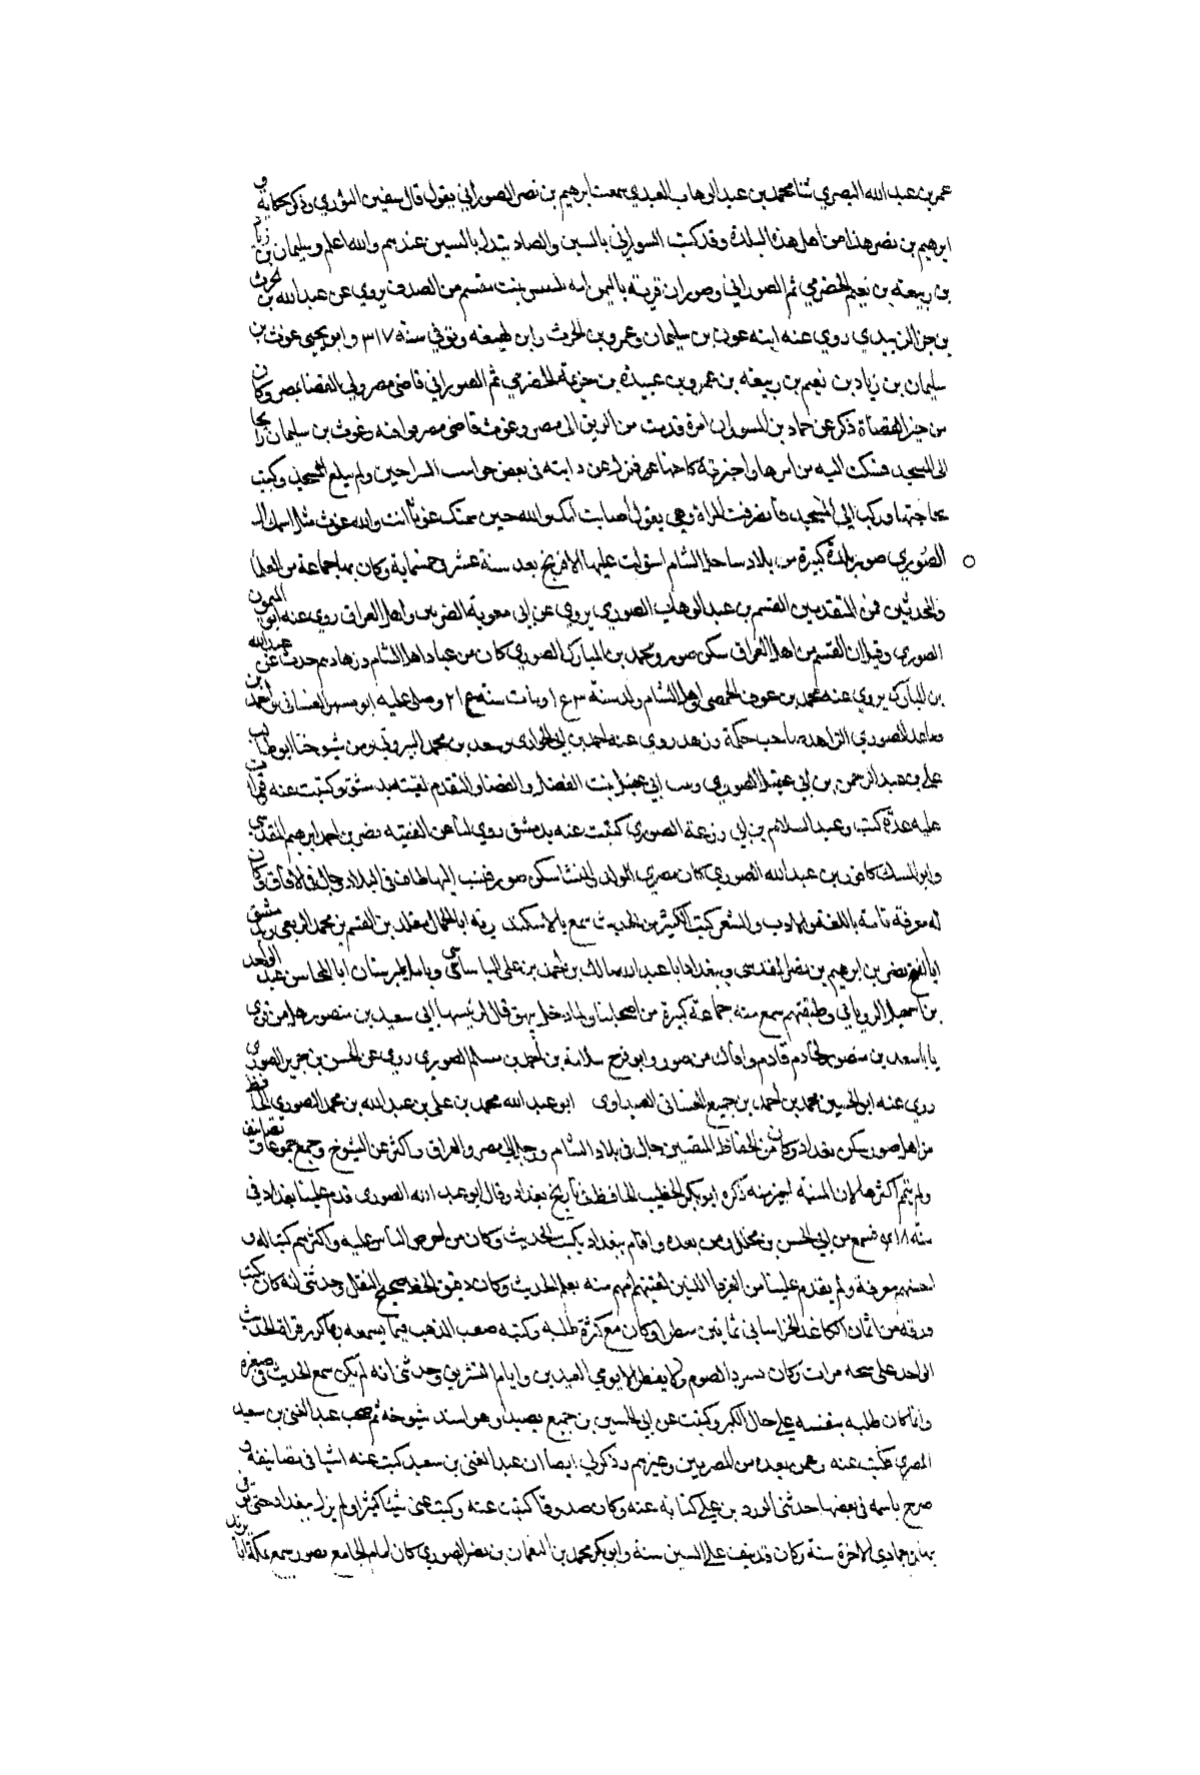 عمر بن عبد الله البصري ثنا محمد بن عبد الوهاب العبدي سمعت ابرهيم بن نصر الصوراني يقول قال سفين الثوري وذكر حكاية و
ابرهيم بن نصر هذا من اهل هذه البلدة وقد كتب السوراني بالسين والصاد يتبدل بالسين عندهم والله اعلم وسليمان بن زياد
بن ربيعة بن نعيم الحضرمي ثم الصوراني وصوران قرية باليمن امه بنت مقسم من الصدف يروي عن عبد الله بن الحرث
بن جزا الزبيدي روي عنه ابنه غوث بن سليمان وعمرو بن الحرث وابن لهيعة وتوفي سنة ٣١٧ وابو يحيى غوث بن
سليمان بن زياد بن نعيم بن ربيعة بن عمرو بن عبيدة بن جزيمة الحضرمي ثم الصوراني قاضي مصر ولي القضا بمصر وكان
من خير القضاة ذكر عن حماد بن المسور ان امرة قدمت من الريف الى مصر وغوث قاضي مصر فوافته وغوث بن سليمان رايحا
الى المسجد فشكت اليه من امرها واخبرته بحاجتها فنزل عن دابته في بعض حوانيت السراجين ولم يبلغ المسجد وكتب
بحاجتها وركب الى المسجد فانصرفت المراة وهي يقول اصابت امك والله حين سمتك غوثا انت والله غوث مثل اسمك
الصوري صور بلدة كبيرة من بلاد ساحل الشام استولت عليها الافرنج بعد سنة عشر وخمسماية وكان بها جماعة من العلما
والمحدثين فمن المتقدمين القسم بن عبد الوهاب الصوري يروي عن ابي معوية الضرير واهل العراق روي عنه ابو الميمون
الصوري وقيل ان القسم من اهل العراق سكن صور ومحمد بن المبارك الصوري كان من عباد اهل الشام وزهادهم حدث عن عبد الله
بن المبارك يروي عنه محمد بن عوف الحمصي واهل الشام ولد سنة ١٥٣ ومات سنة ٢١٤ وصلى عليه ابو مسهر الغساني بن احمد بن
صاعد الصوري الزاهد صاحب حكمة وزهد روي عنه احمد بن ابي الحواري وسعد بن محمد البيروتي ومن شيوخنا ابو طالب
علي بن عبد الرحمن بن ابي عقيل الصوري من بيت الفضل والقضا والتقدم لقيته بدمشق وكتبت عنه وقرات
عليه عدة كتب وعبد السلام بن ابي زرعة الصوري كتبت عنه بدمشق روي لنا عن الفقيه نصر بن احمد ابرهيم المقدسي
وابو المسك كافور بن عبد الله الصوري كان مصري المولد والمنشا سكن صور فنسب اليها طاف في البلاد وجال في الافاق وكان
له معرفة تامة باللغة والادب والشعر كتب الكثير من الحديث سمع بالاسكندرية ابا الجمال مقلد بن القسم بن محمد الربعي وبدمشق
ابا الفتح نصر بن ابرهيم بن نصر المقدسي وببغداد ابا عبد الله مالك بن احمد بن علي البانياسي وبامل طبرستان ابا المحاسن عبد الواحد
بن اسمعيل الروياني وطبقتهم سمع منه جماعة كبيرة من اصحابنا ولما دخل بيهق قال لرئيسها ابي سعيد بن منصور هل من قري
يا با سعد بن منصور لخادم قادم وافاك من صور وابو فرج سلامة بن احمد بن مسلم الصوري روي عن الحسن بن جرير الصوري
روي عنه ابو الحسين محمد بن احمد بن جميع الغساني الصيداوي ابو عبد الله محمد بن علي بن عبد الله بن محمد الصوري الحافظ
من اهل صور سكن بغداد وكان من الحفاظ المتقنين جال في بلاد الشام ورحل الى مصر والعراق واكثر عن الشيوخ وجمع جموعا وتصانيف
ولم يتم اكثرها لان المنية اخترمته ذكره ابو بكر الخطيب الحافظ في تاريخ بغداد وقال ابو عبد الله الصوري قدم علينا بغداد في
سنة ٤١٨ فسمع من ابي الحسن بن مخلد ومن بعده واقام ببغداد يكتب الحديث وكان من احرص الناس عليه واكثرهم كتبا له و
احسنهم معرفة ولم يقدم علينا من الغربا الذين لقيتهم افهم منه بعلم الحديث وكان دقيق الخط صحيح النقل وحدثني انه كان يكتب
ورقة من اثمان الكاغد الخراساني ثمانين سطرا وكان مع كثرة طلبه وكتبه صعب المذهب فيما يسمعه ربما كرر قراة الحديث
الواحد على شيخه مرات وكان يسرد الصوم ولا يفطر الا يومي العيدين وايام التشريق وحدثني انه لم يكن سمع الحديث في صغره
وانما كان طلبه بنفسه على حال الكبر وكتب عن ابي الحسين بن جميع بصيدا وهو اسند شيوخه ثم صحب عبد الغني بن سعيد
المصري فكتب عنه وعمن بعده من المصريين وغيرهم وذكر لي ايضا ان عبد الغني بن سعيد كتب عنه اشيا في تصانيفه و
صرح باسمه في بعضها حدثني الورد بن علي كناية عنه وكان صدوقا كتبت عنه وكتب عني شيئا كثيرا ولم يزل ببغداد حتى توفي
بها في جمادي الاخرة سنة وكان قد نيف على الستين سنة وابو بكر محمد بن النعمان بن نصر الصوري كان امام الجامع بصور سمع بمكة ابا يزيد